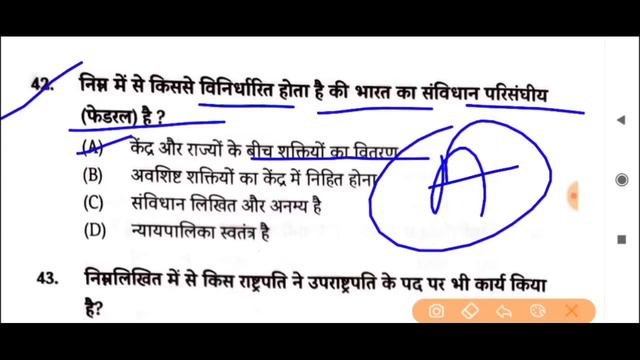 42. निम्न में से किससे विनिर्धारित होता है की भारत का संविधान परिसंघीय
(फेडरल) है ?
(A) केंद्र और राज्यों के बीच शक्तियों का वितरण
(B) अवशिष्ट शक्तियों का केंद्र में निहित होना
(C) संविधान लिखित और अनम्य है
(D) न्यायपालिका स्वतंत्र है
A
43. निम्नलिखित में से किस राष्ट्रपति ने उपराष्ट्रपति के पद पर भी कार्य किया
है?